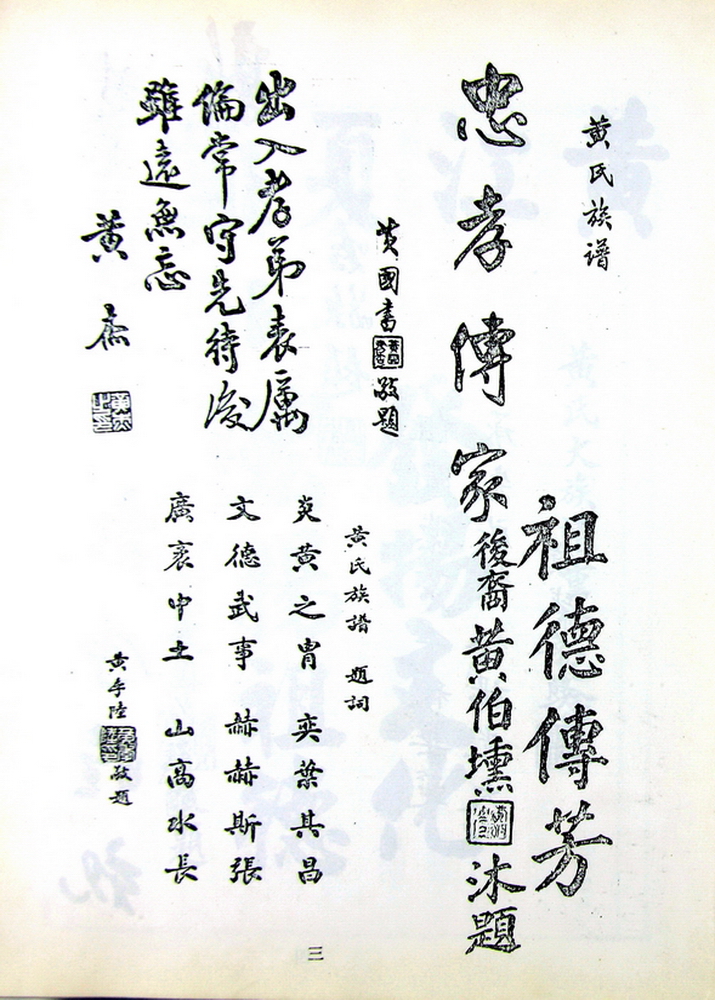 黃氏族譜
忠孝傳家
黃國書 敬題
祖德傳芳
後裔黃伯壎 沐題
出入孝弟表厲
倫常守先待後
雖遠無忘
黃杰
黃氏族譜 題詞
炎黃之胄 奕葉其昌
文德武事 赫赫斯張
廣袤中土 山高水長
黃季陸 敬題
三